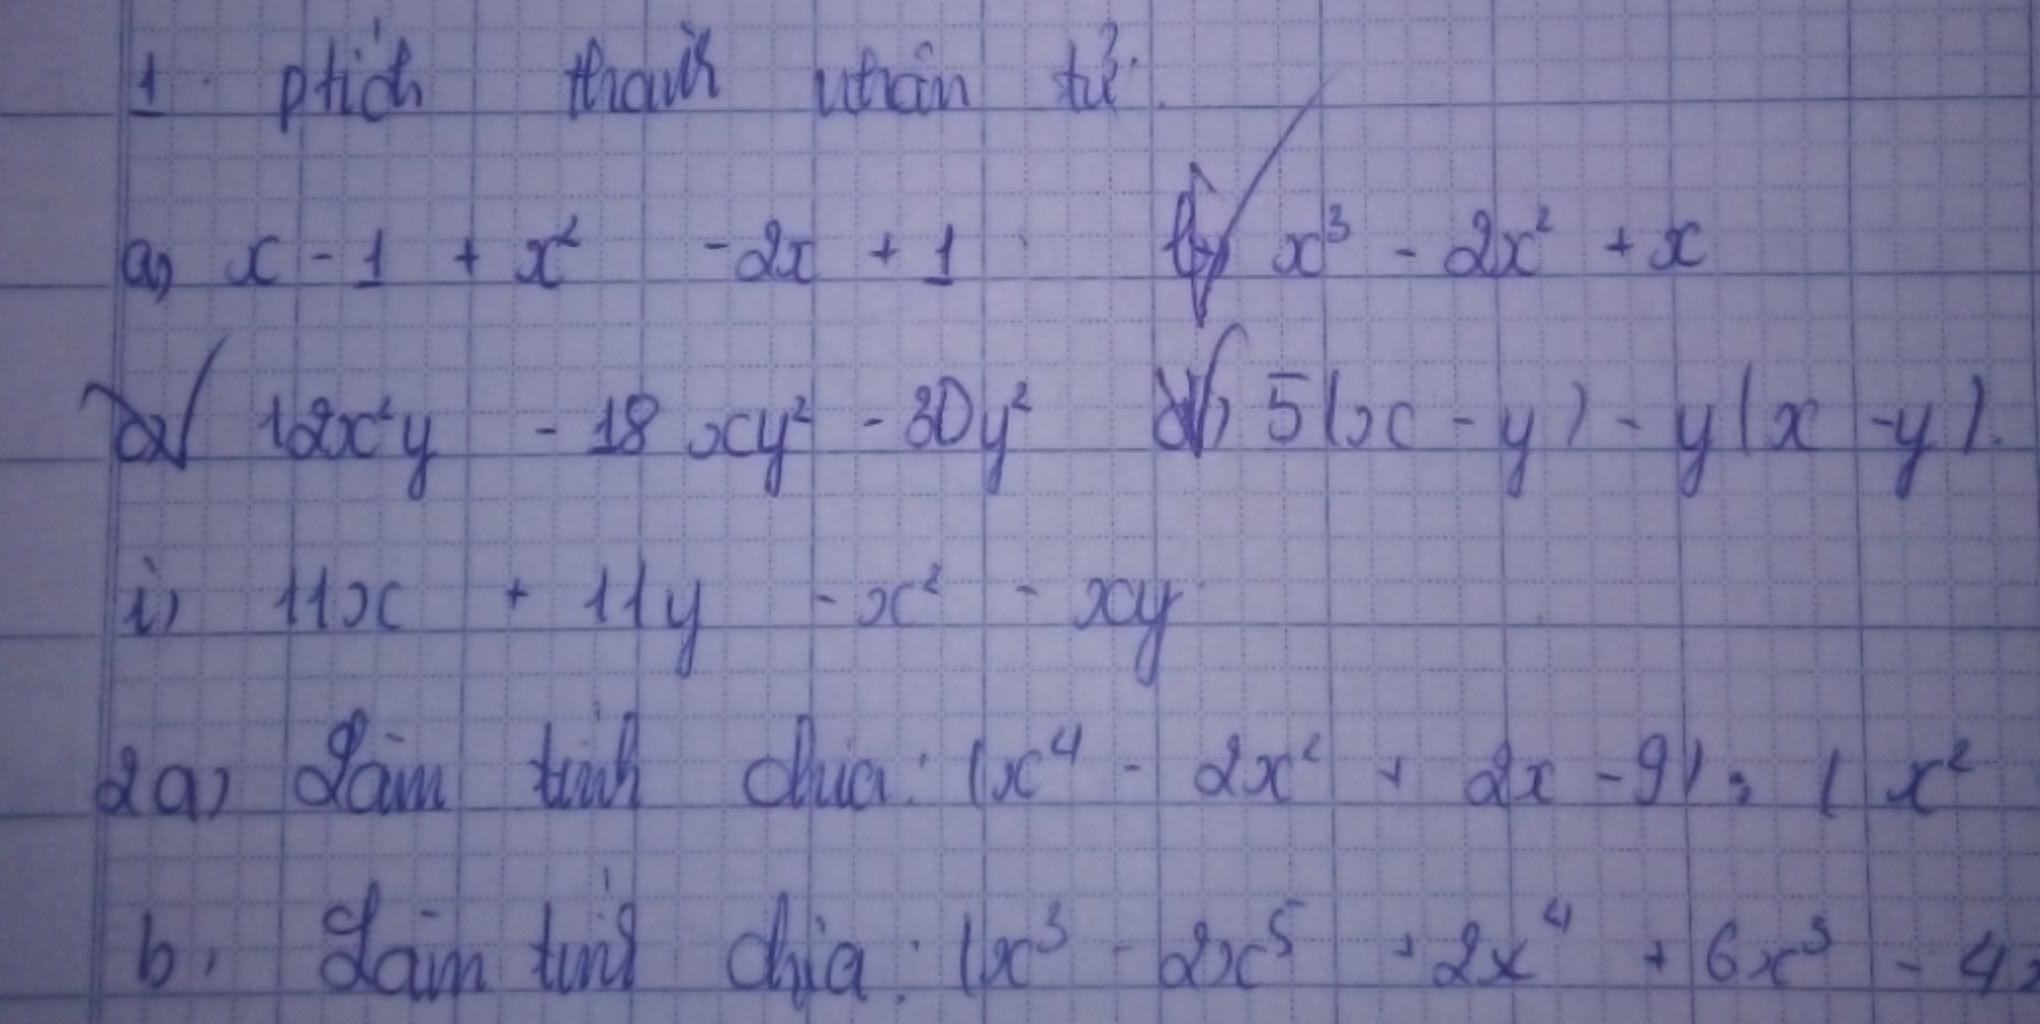 1. ptích thành nhân tử.
a) x - 1 + x² - 2x + 1 b) x³ - 2x² + x
12x²y - 18xy² - 30y² 5(x - y) - y(x - y).
i) 11x + 11y - x² - xy
2a) Làm tính chia: (x⁴ - 2x² + 2x - 9) : (x²
b. Làm tính chia: (x³ - 2x⁵ + 2x⁴ + 6x³ - 4